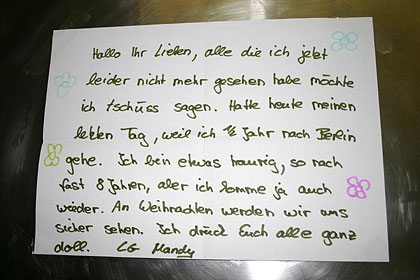 Hallo Ihr Lieben, alle die ich jetzt
leider nicht mehr gesehen habe möchte
ich tschüss sagen. Hatte heute meinen
letzten Tag, weil ich 1/2 Jahr nach Berlin
gehe. Ich bin etwas traurig, so nach
fast 8 Jahren, aber ich komme ja auch
wieder. An Weihnachten werden wir uns
sicher sehen. Ich drück Euch alle ganz
doll. LG Mandy